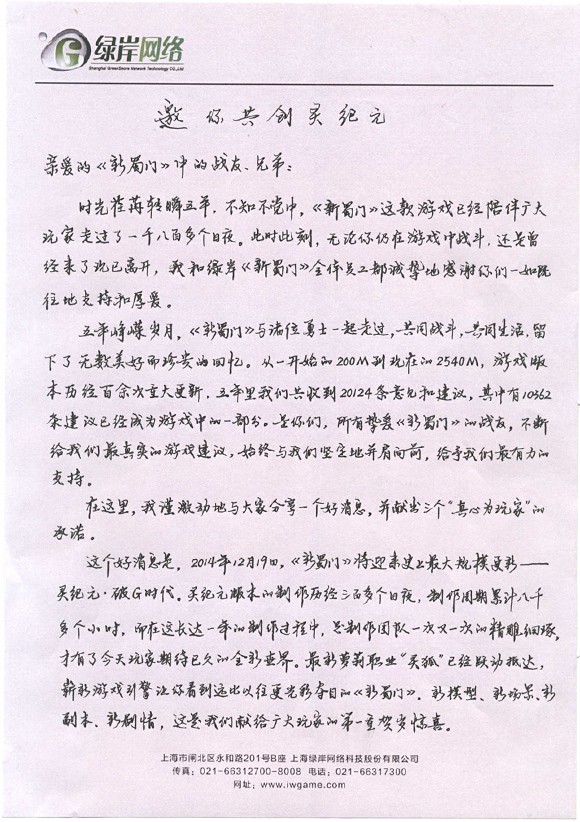 绿岸网络
Shanghai GreenShore Network Technology CO.,Ltd
邀你共创灵纪元
亲爱的《新蜀门》中的战友、兄弟：
时光荏苒转瞬五年，不知不觉中，《新蜀门》这款游戏已经陪伴广大
玩家走过了一千八百多个日夜。此时此刻，无论你仍在游戏中战斗，还是曾
经来了现已离开，我和绿岸《新蜀门》全体员工都诚挚地感谢你们一如既
往地支持和厚爱。
五年峥嵘岁月，《新蜀门》与诸位勇士一起走过，共同战斗，共同生活，留
下了无数美好而珍贵的回忆。从一开始的200M到现在的2540M，游戏版
本历经百余次重大更新，五年里我们共收到20124条意见和建议，其中有10362
条建议已经成为游戏中的一部分。是你们，所有挚爱《新蜀门》的战友，不断
给我们最真实的游戏建议，始终与我们坚定地并肩向前，给予我们最有力的
支持。
在这里，我谨激动地与大家分享一个好消息，并献出三个“真心为玩家”的
承诺。
这个好消息是，2014年12月19日，《新蜀门》将迎来史上最大规模更新——
灵纪元·破G时代。灵纪元版本的制作历经三百多个日夜，制作周期累计八千
多个小时，而在这长达一年的制作过程中，总制作团队一次又一次的精雕细琢，
才有了今天玩家期待已久的全新世界。最新萝莉职业“灵狐”已经跃动抵达，
崭新游戏引擎让你看到远比以往更光彩夺目的《新蜀门》，新模型、新场景、新
副本、新剧情，这是我们献给广大玩家的第一重贺岁惊喜。
上海市闸北区永和路201号B座 上海绿岸网络科技股份有限公司
传真：021-66312700-8008 电话：021-66317300
网址：www.iwgame.com